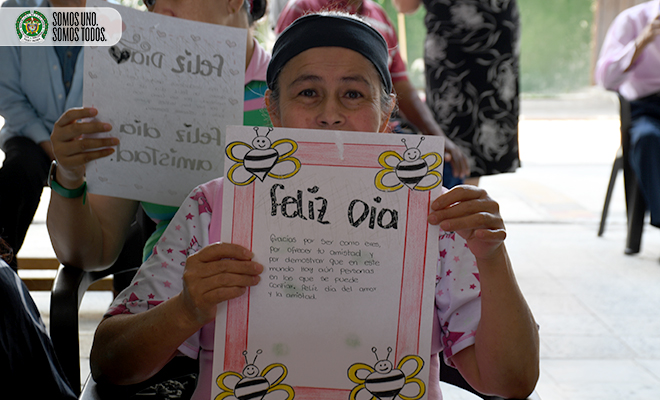 SOMOS UNO.
SOMOS TODOS.
Feliz Día
feliz día
amistad.
Feliz Dia
Gracias por ser como eres,
por ofrecer tu amistad y
por demostrar que en este
mundo hay aún personas
en las que se puede
confiar, feliz dia del amor
y la amistad.